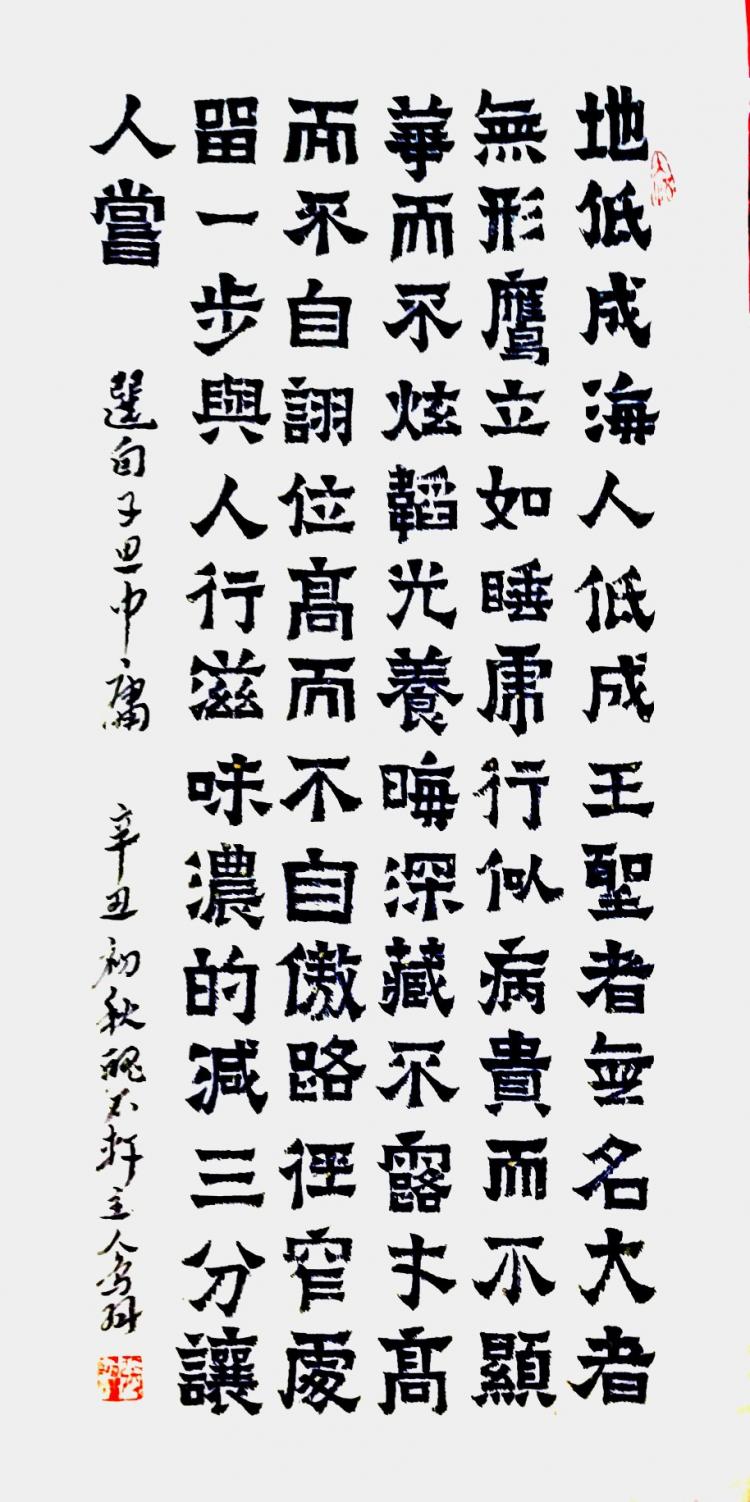 地低成海人低成王聖者無名大者
無形鷹立如睡虎行似病貴而不顯
華而不炫韜光養晦深藏不露才高
而不自詡位高而不自傲路徑窄處
留一步與人行滋味濃的減三分讓
人嘗
選自子思中庸 辛丑初秋 主人